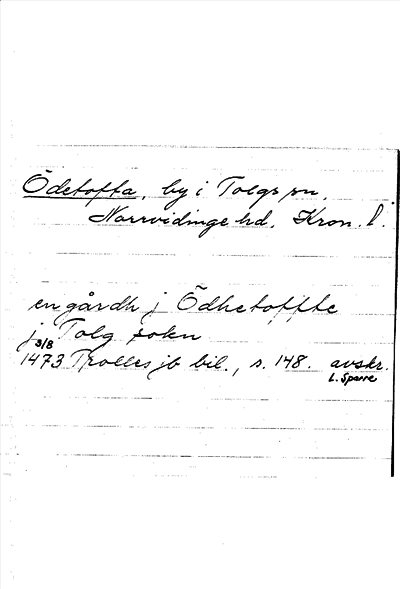 Ödetofta, by i Tolgs sn,
Norrvidinge hd, Kron. l.
en gårdh j Ödhetoffte
j Tolg sokn
3/8
1473 Trolles jb bil., s. 148. avskr.
L. Sparre